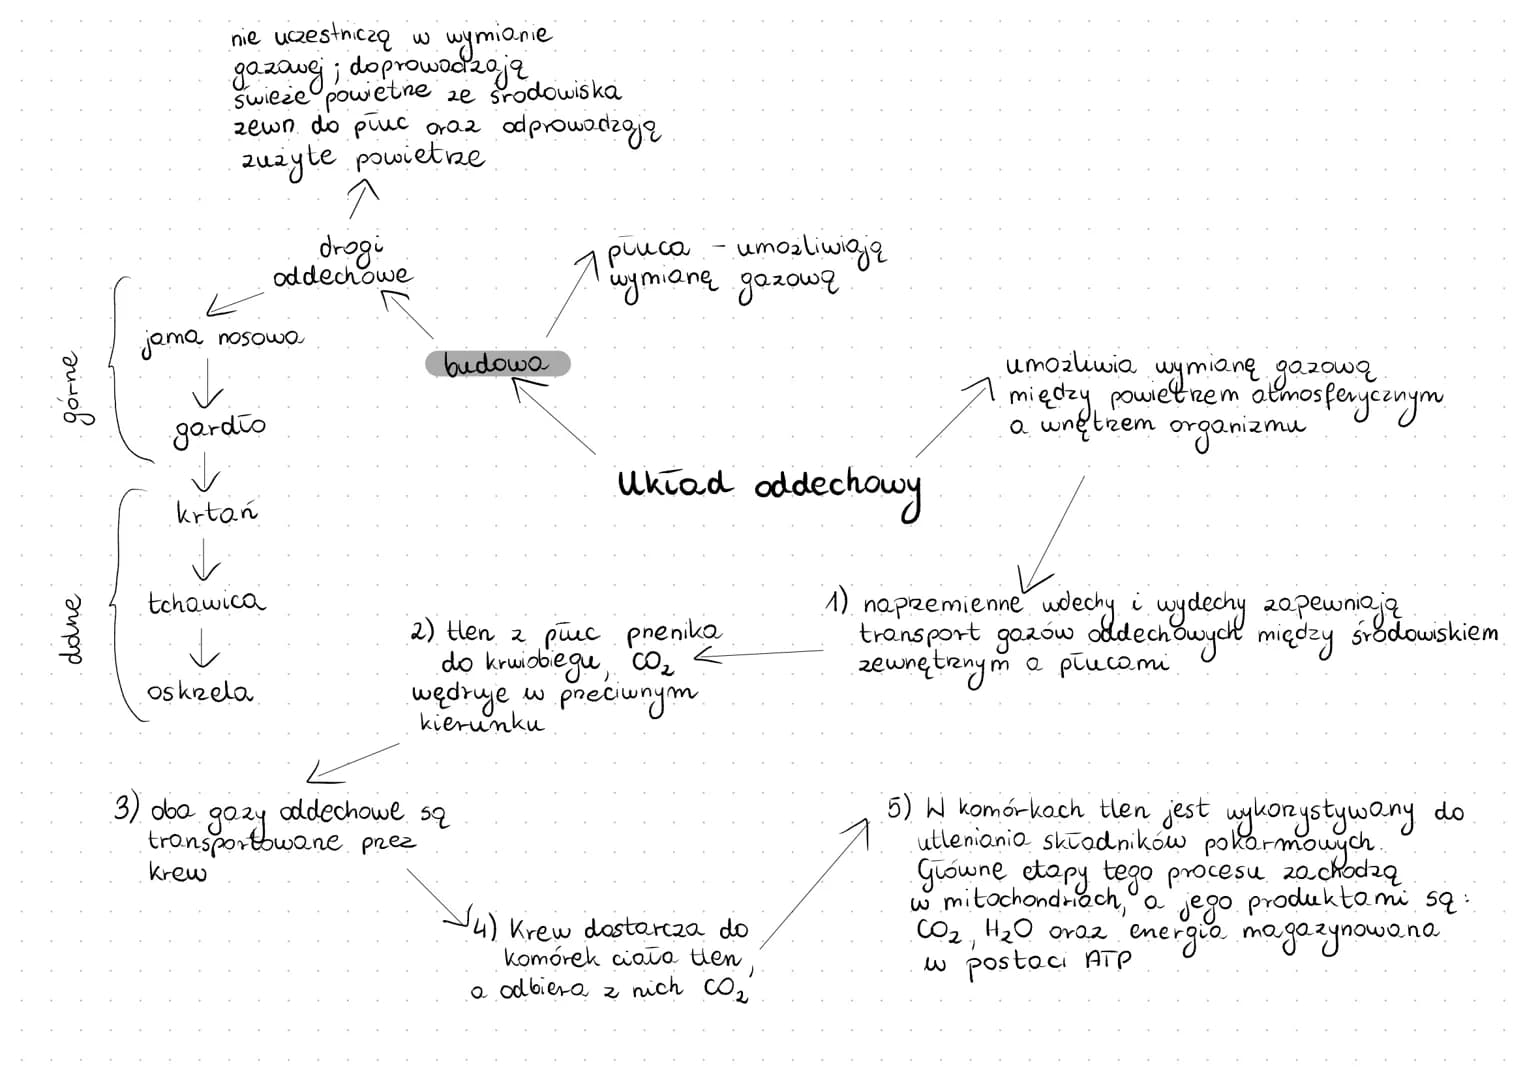 nie uczestniczą w wymianie
gazowej ; doprowadzają
świeże powietrze ze środowiska
zewn. do płuc oraz odprowadzają
zużyte powietrze
drogi
oddechowe
płuca - umożliwiają
wymianę gazową
górne
jama nosowa
gardło
budowa
umożliwia wymianę gazową
między powietrzem atmosferycznym
a wnętrzem organizmu
Układ oddechowy
dolne
krtań
tchawica
oskrzela
1) naprzemienne wdechy i wydechy zapewniają
transport gazów oddechowych między środowiskiem
zewnętrznym a płucami
2) tlen z płuc przenika
do krwiobiegu, CO₂
wędruje w przeciwnym
kierunku
3) oba gazy oddechowe są
transportowane przez
krew
4) Krew dostarcza do
komórek ciała tlen,
a odbiera z nich CO₂
5) W komórkach tlen jest wykorzystywany do
utleniania składników pokarmowych.
Główne etapy tego procesu zachodzą
w mitochondriach, a jego produktami są:
CO₂, H₂O oraz energia magazynowana
w postaci ATP